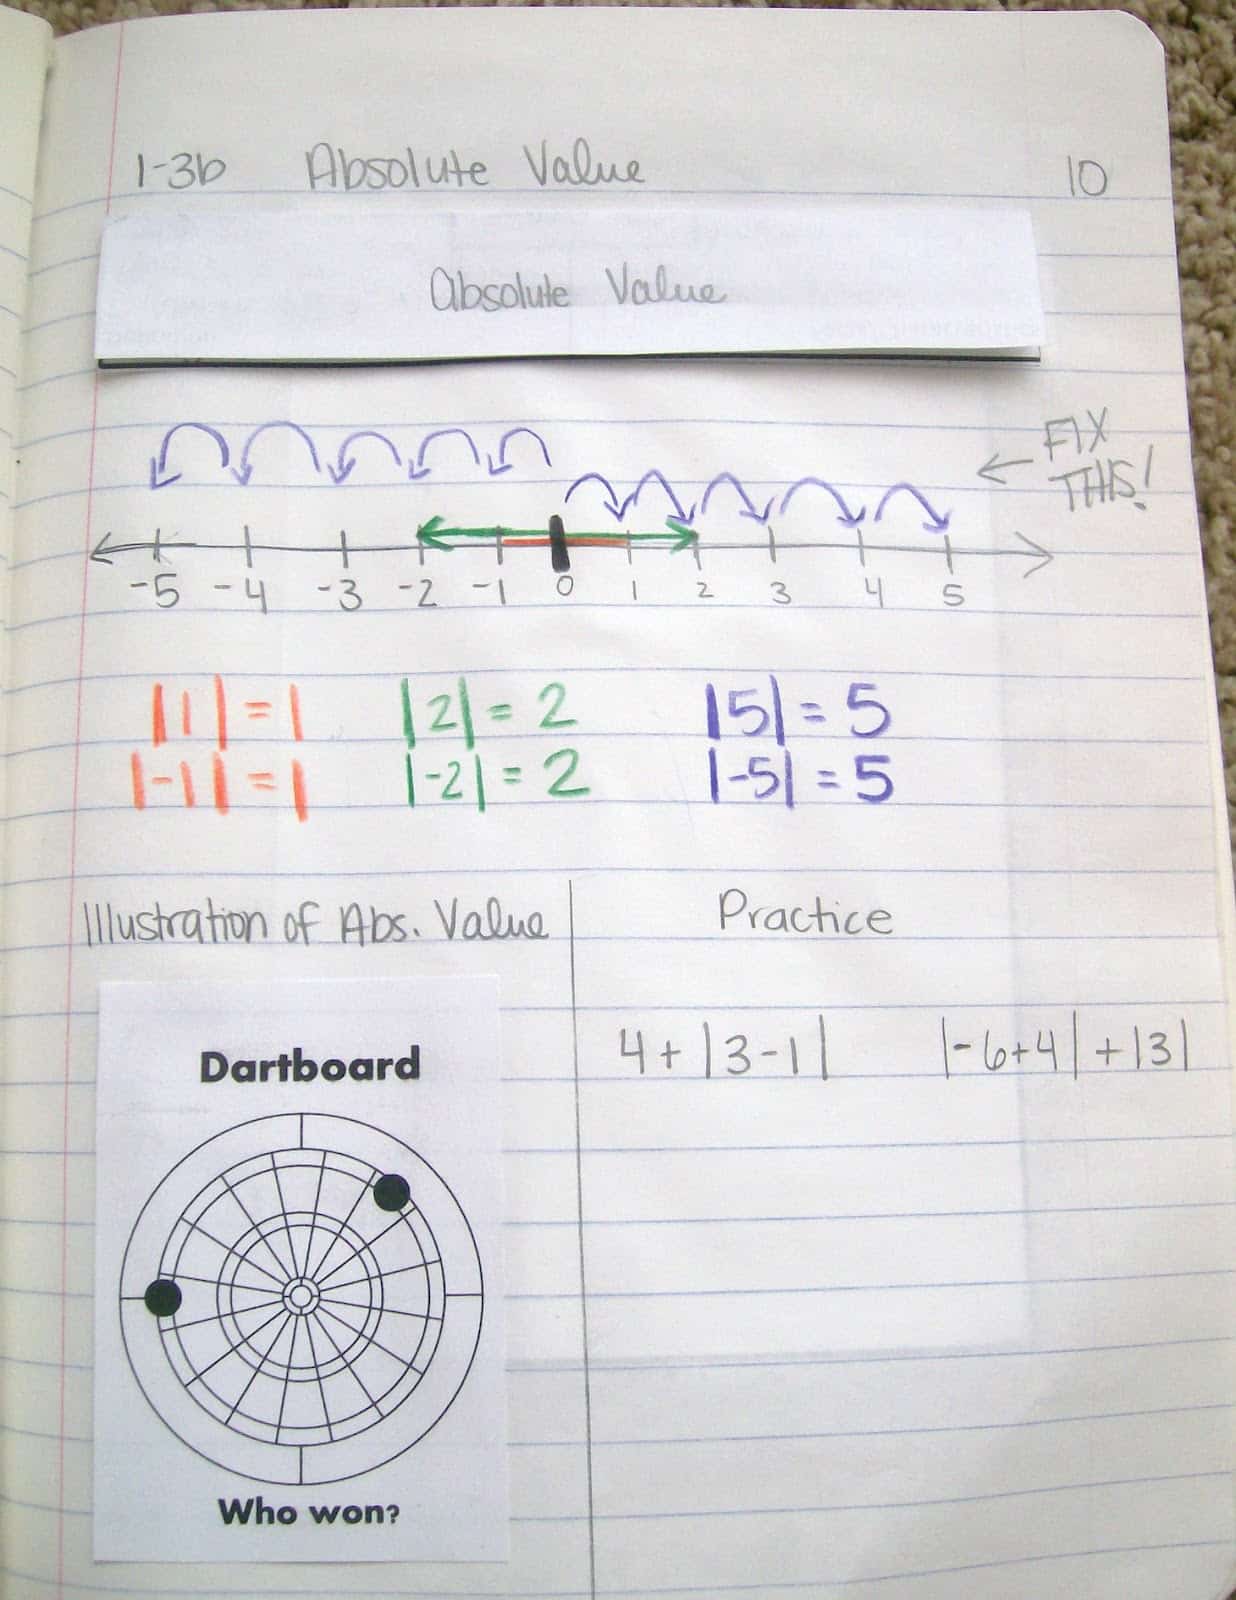 1-3b Absolute Value 10
Absolute Value
← FIX
THIS!
-5 -4 -3 -2 -1 0 1 2 3 4 5
|1| = 1 |2| = 2 |5| = 5
|-1| = 1 |-2| = 2 |-5| = 5
Illustration of Abs. Value Practice
4 + |3-1| |-6+4| + |3|
Dartboard
Who won?